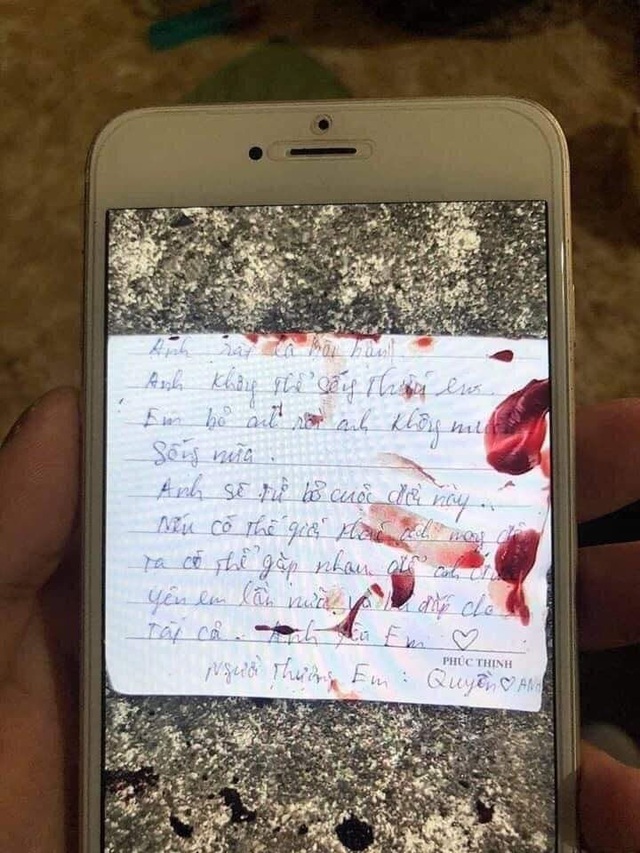 Anh rất là hối hận!
Anh không thể sống thiếu em.
Em bỏ anh rồi anh không
sống nữa.
Anh sẽ từ bỏ cuộc đời này..
Nếu có thế giới khác anh mong
ta có thể gặp nhau để anh
yêu em lần nữa. bù đắp cho
tất cả. Anh yêu Em ♡
PHÚC THỊNH
Người Thương Em: Quyền ♡ ANH